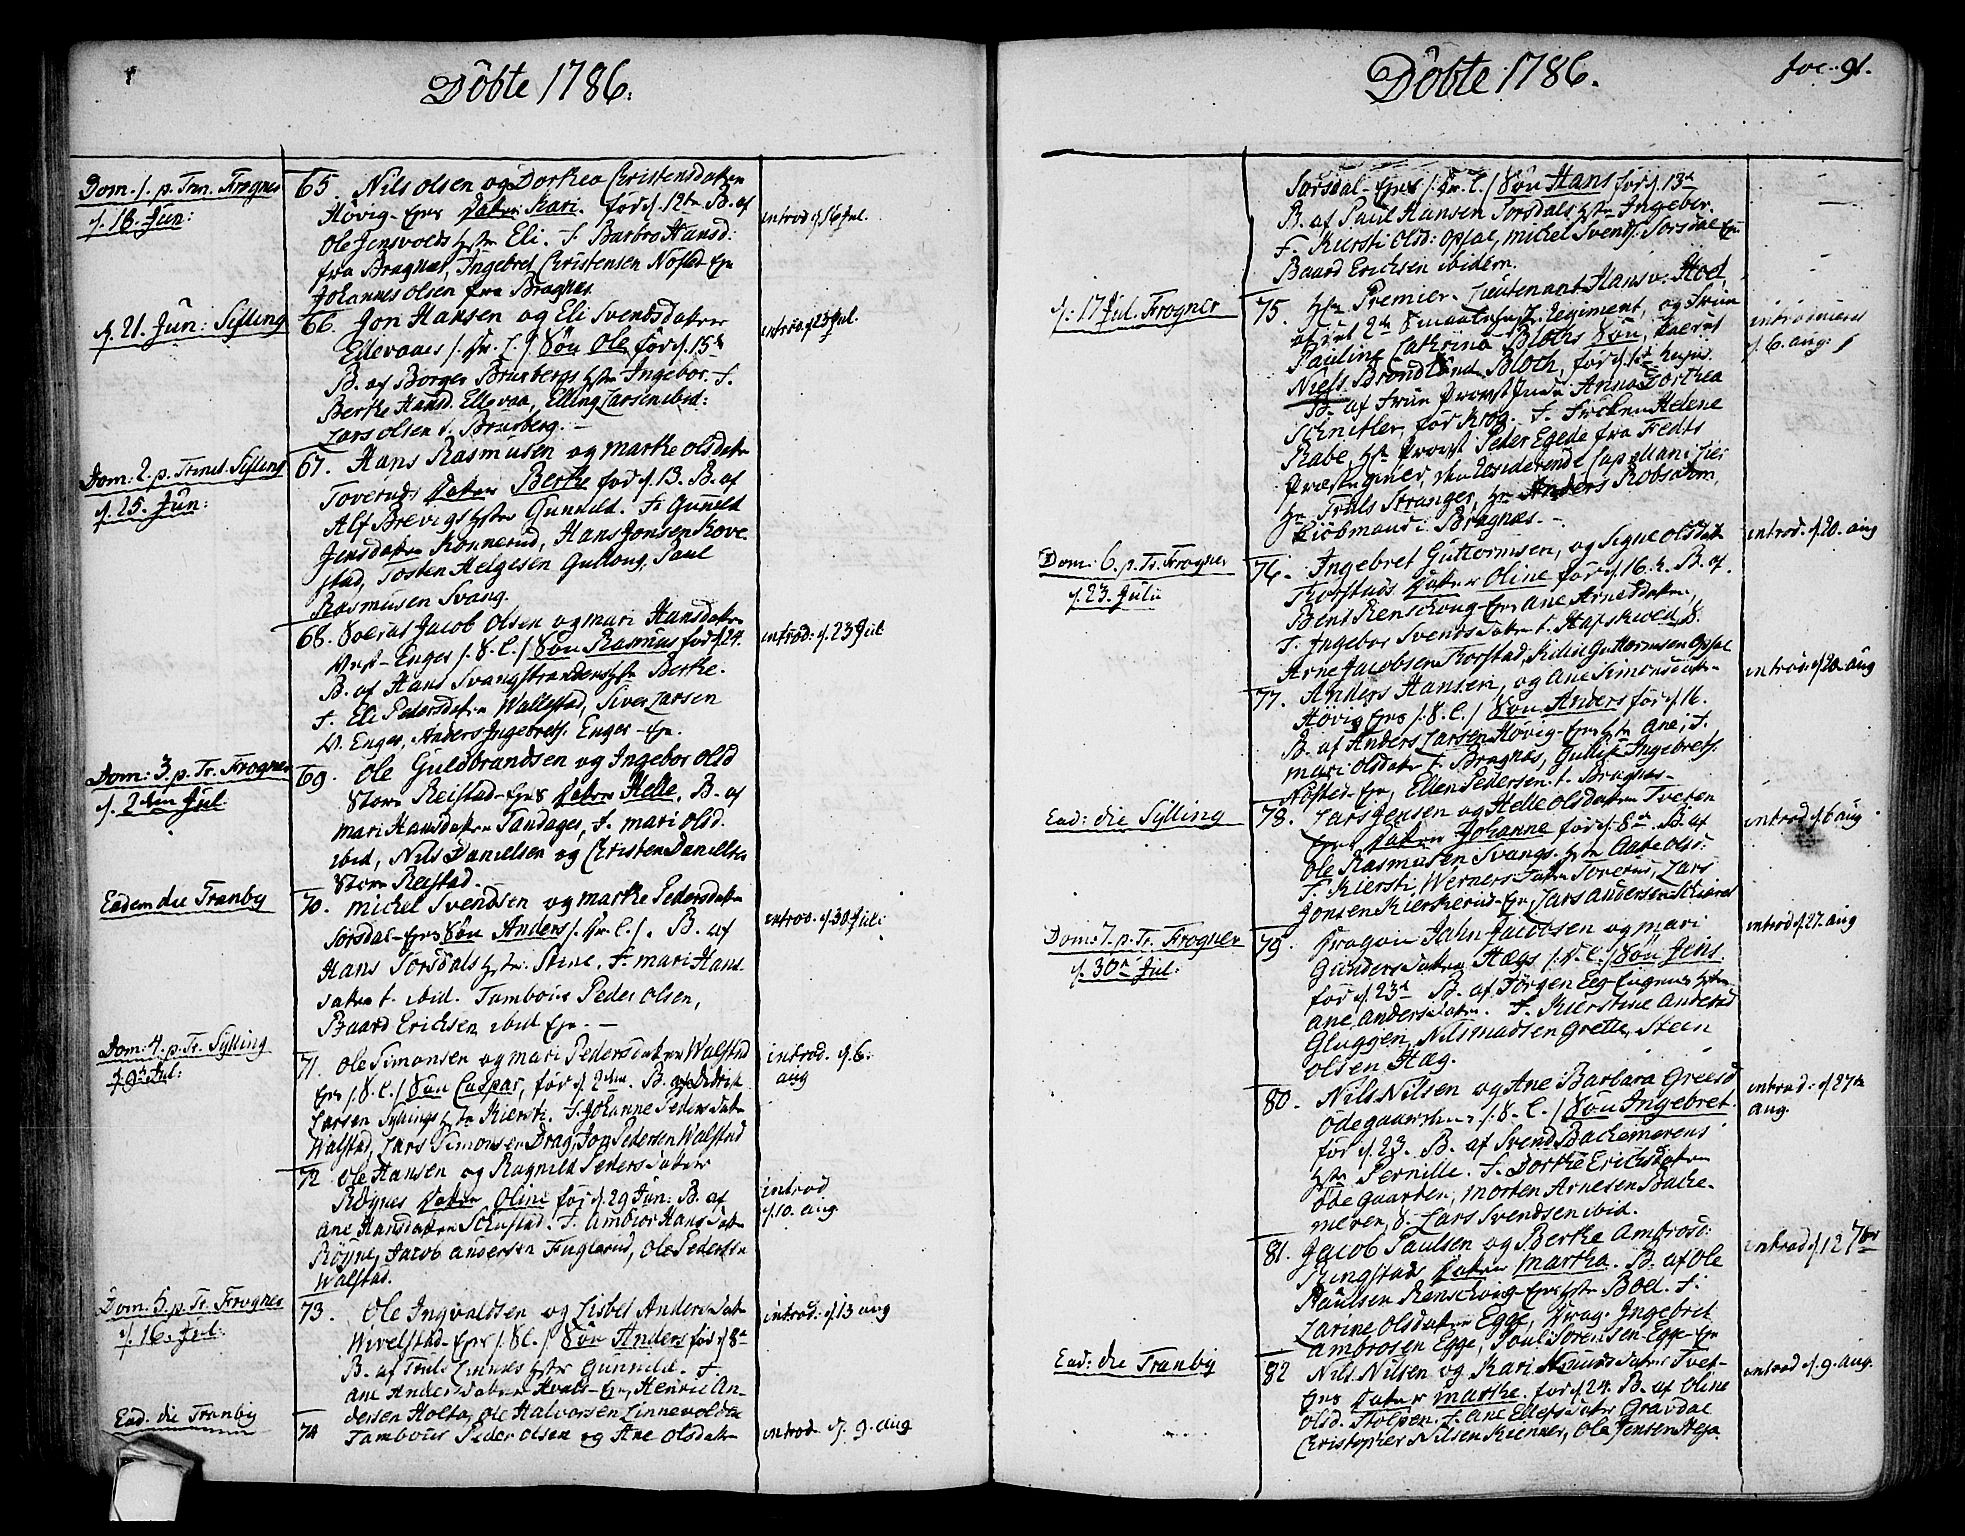 Döbte 1786.
Dom. 1. p. Trin. Frogner
d. 18. Jun:
65. Nils Olsen og Dorthea Christensdatter
Hövig-Eyes Datter Kari. föd d. 12te B. af
Ole Jensvolds Hstr Eli. F. Barbro Hansd:
fra Bragnæs, Ingebret Christensen Nösted Eye
Johannes Olsen fra Bragnæs.
introd d. 16 Jul.
d. 21. Jun: Sylling
66. Jon Hansen og Eli Svendsdatter
Ellevaaes /: Fr. C. / Sön Ole föd d. 15de
B. af Borger Brusbergs Hstr Ingebor. F.
Berthe Hansd. Ellevaa, Elling Larsen ibid:
Lars Olsen v. Brusberg. -
introd d. 23 Jul.
Dom: 2. p. Trinit. Sylling
d. 25. Jun:
67. Hans Rasmusen og Marthe Olsdatter
Toveruds Datter Berthe föd d. 13. B. af
Alf Brevigs Hstr Gunild. F. Gunild
Jensdatter Konnerud, Hans Jonsen Rove-
stad, Tosten Helgesen Gulloug, Paul
Rasmusen Svang.
68. Soldat Jacob Olsen og Mari Hansdatter
Enger /: S. C. / Sön Rasmus föd d. 24.
B. af Hans Svangstrandens Hstr Berthe.
F. Eli Pedersdatter Wallestad, Siver Larsen
V. Enger, Anders Ingebretsen Enger-Eye.
introd: d. 23 Jul:
Dom: 3. p. Tr. Frogner
d. 2den Jul.
69. Ole Guldbrandsen og Ingebor Olsd
Store Reistad-Eyes Datter Helle. B. af
Mari Hansdatter Tandager, F. Mari Olsd.
ibid, Nils Danielsen og Christen Danielsen
Store Reistad.
Eadem die Tranby
70. Michel Svendsen og Marthe Pedersdatter
Sørsdal-Eyes Sön Anders /: Fr. C. /. B. af
Hans Torsdals Hstr. Stine. F. Mari Hans-
datter t. ibid. Tambour Peder Olsen,
Baard Erichsen ibid Eye. -
introd. d. 30 Jul:
Dom: 4. p. Tr. Sylling
d. 9de Jul:
71. Ole Simonsen og Mari Pedersdatter Walstad
Eyes /: S. C. / Sön Caspar, föd d. 2den. B. af Didrik
Larsen Syllings Hstr Kiersti. F. Johanne Pedersdatter
Walstad, Lars Simonsen Drag, Jon Pedersen Walstad
introd. d. 6.
aug
72 Ole Hansen og Ragnild Pedersdatter
Röynes Datter Oline föd d. 29 Jun: B. af
Ane Hansdatter Schustad. F. Ambior Hansdatter
Röyne, Jacob Andersen Fuglerud, Ole Pedersen
Walstad.
introd
d. 10. aug.
Dom. 5. p. Tr. Frogner
d. 16. Jul:
73. Ole Ingvaldsen og Lisbet Andersdatter
Wivelstad-Eyes /: S. C. / Sön Anders föd d. 8de
B. af Truls Linnes Hstr Gunnild. F.
Ane Andersdatter Hvals-Eye, Henric An-
dersen Holta, Ole Halvorsen Linnevolden
introd: d. 13 aug
Ead. die Tranby
74 Tambour Peder Olsen og Ane Olsdatter
introd. d. 9. aug
Döbte 1786.
fol. 91.
Sørsdal-Eyes /: Fr. C. / Sön Hans föd d. 13de
B. af Paul Hansen Sørsdals Hstr Ingebor.
F. Kiersti Olsd: Opsal, Michel Svends. Sørsdal Eye
Baard Erichsen ibidem.
d: 17 Jul. Frogner
75. Hr. Premier-Lieutenant Hans v. Hoel,
af det 2det Smaalehnske Regiment, og Frue
Pauline Cathrina Blochs Sön, Döbt
Niels Brandlund Bloch, föd d. 1st hujus.
B. af Frue Provstinde Anna Dorthea
Schnitler för Krog. F. Fröken Helene
Rabe, Hr. Provst Peder Egede fra Fedts
Præstegield, den residerende Capellan i Lier
Hr Truls Stranger, Hr Anders Robsahm,
Kiöbmand i Bragnæs. -
introduceret
d. 6. aug:
Dom: 6. p. Tr. Frogner
d. 23. Julii
76. Ingebret Guttormsen, og Signe Olsdatter
Torstads Datter Oline föd d. 16. h. B. af
Bent Renschoug-Eye Ane Arnesdatter,
F. Ingebor Svendsdatter t. Hafskield, S.
Arne Jacobsen Torstad, Kield Guttormsen Opsal
introd. d. 20. aug
77. Anders Hansen, og Ane Simonsdatter
Hövig Eyes /: S. C. / Sön Anders föd d. 16.
B. af Anders Larsen Hövig-Eyes Hstr Ane, F.
Mari Olsdatter t. Bragnæs, Gullik Ingebrets.
Nösted-Eye, Ellen Pedersen t. Bragnæs-
introd d. 20. aug
Ead: die Sylling
78. Lars Jensen og Helle Olsdatter Tveten
Eyes Datter Johanne föd d. 8de B. af
Ole Rasmusen Svangs Hstr Aase Olsd:
F. Kiersti Wernersdatter Toverud, Lars
Jonsen Kierkerud-Eye, Lars Andersen Schiærst
introd d. 6 aug
Dom: 7. p. Tr. Frogner
d. 30te Jul:
79. Dragon Jahn Jacobsen og Mari
Gundersdatter Hægs /: S. C. / Sön Jens.
föd d. 23de B. af Jörgen Eeg Eugenes Hstr
Ane Andersdatter. F. Kierstine Andersd
Gluggen, Nils Madsen Grette, Steen
Olsen Hæg.
introd d. 27. aug
80. Nils Nilsen og Ane Barbara Greesd
Ödegaardens /: S. C. / Sön Ingebret.
föd d. 23. B. af Svend Bachemerens
Hstr Pernille. F. Dorthe Erichsdatter
Ödegaarden, Morten Arnesen Bache-
meren, S. Lars Svendsen ibid.
introd: d. 27de
aug.
81. Jacob Paulsen og Berthe Ambrosd:
Ringstads Datter Martha. B. af Ole
Paulsen Renschvig-Eyes Hstr Boel. F.
Larine Olsdatter Egge, Drag. Ingebret
Ambrosen Egge, Poul Sörensen Egge-Eye
introd d. 12 7br
Ead: die Tranby
82 Nils Nilsen og Kari Knudsdatter Tvet-
Eyes Datter Marthe. föd d. 24. B. af Oline
Olsd. Stolpen. F. Ane Ellefsdatter Gravdal
Christopher Nilsen Kienner, Ole Jensen Hega.
introd d. 9. aug.